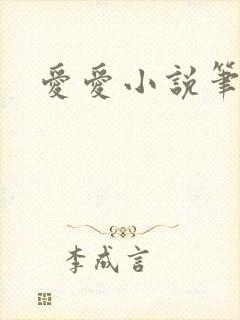 愛愛小說筆
李成言